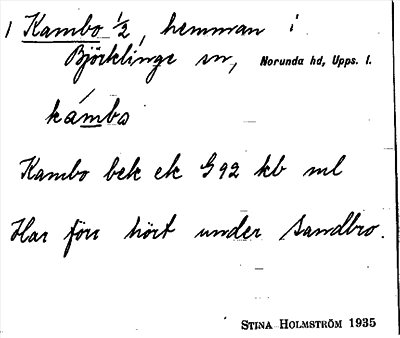 1 Kambo 1/2, hemman i
Björklinge sn, Norunda hd, Upps. l.
kámbo
Kambo bek ek G 92 kb ml
Har förr hört under Sandbro.
STINA HOLMSTRÖM 1935